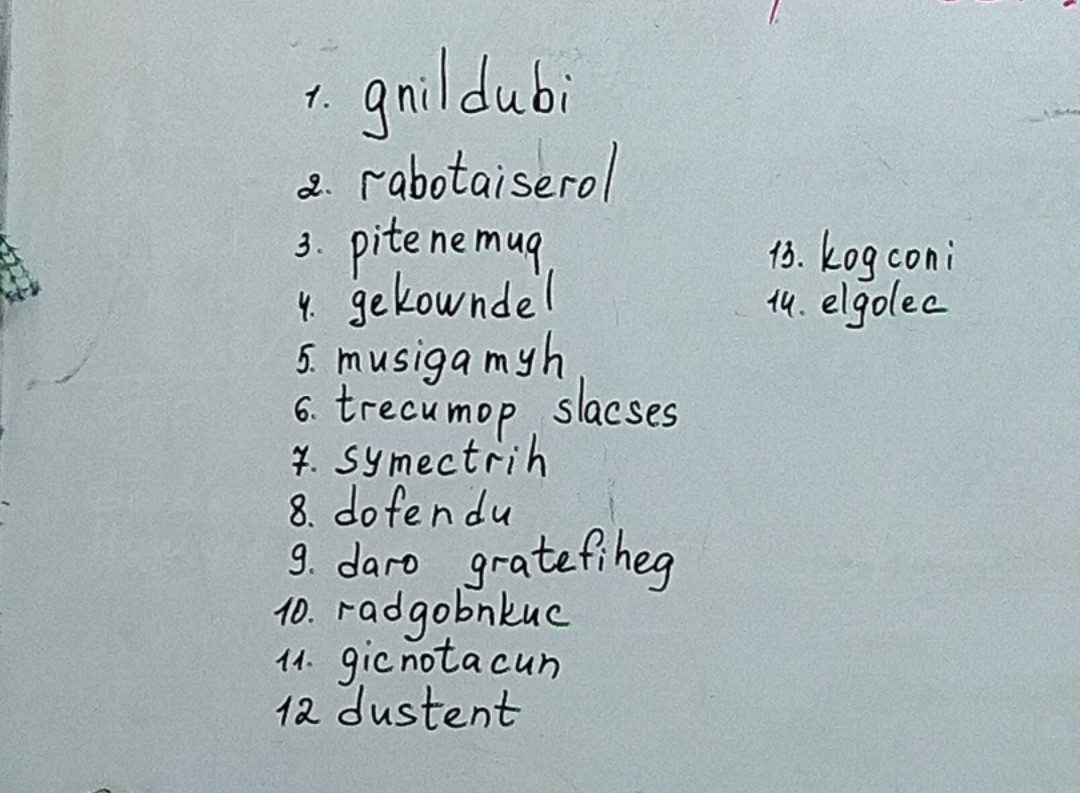 1. gnildubi
2. rabotaiserol
3. pitenemuq
4. gekowndel
5. musigamyh
6. trecumop slacses
7. symectrih
8. dofendu
9. daro gratefiheg
10. radgobnkuc
11. gicnotacun
12 dustent
13. kogconi
14. elgolec